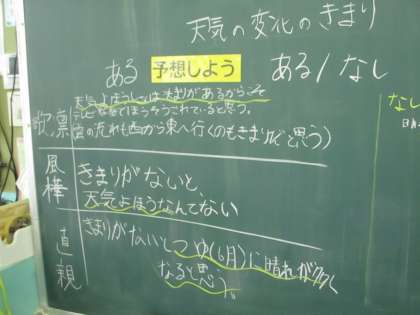 天気の変化のきまり
ある 予想しよう ある/なし
天気よほうしは、きまりがあるからこそ
テレビなどでほうそうされていると思う。
雲の流れも西から東へ行くのもきまりだと思う)
風
棒
きまりがないと、
天気よほうなんてない
直
親
きまりがないとつゆ(6月)に晴れが多く
なると思う。
なし